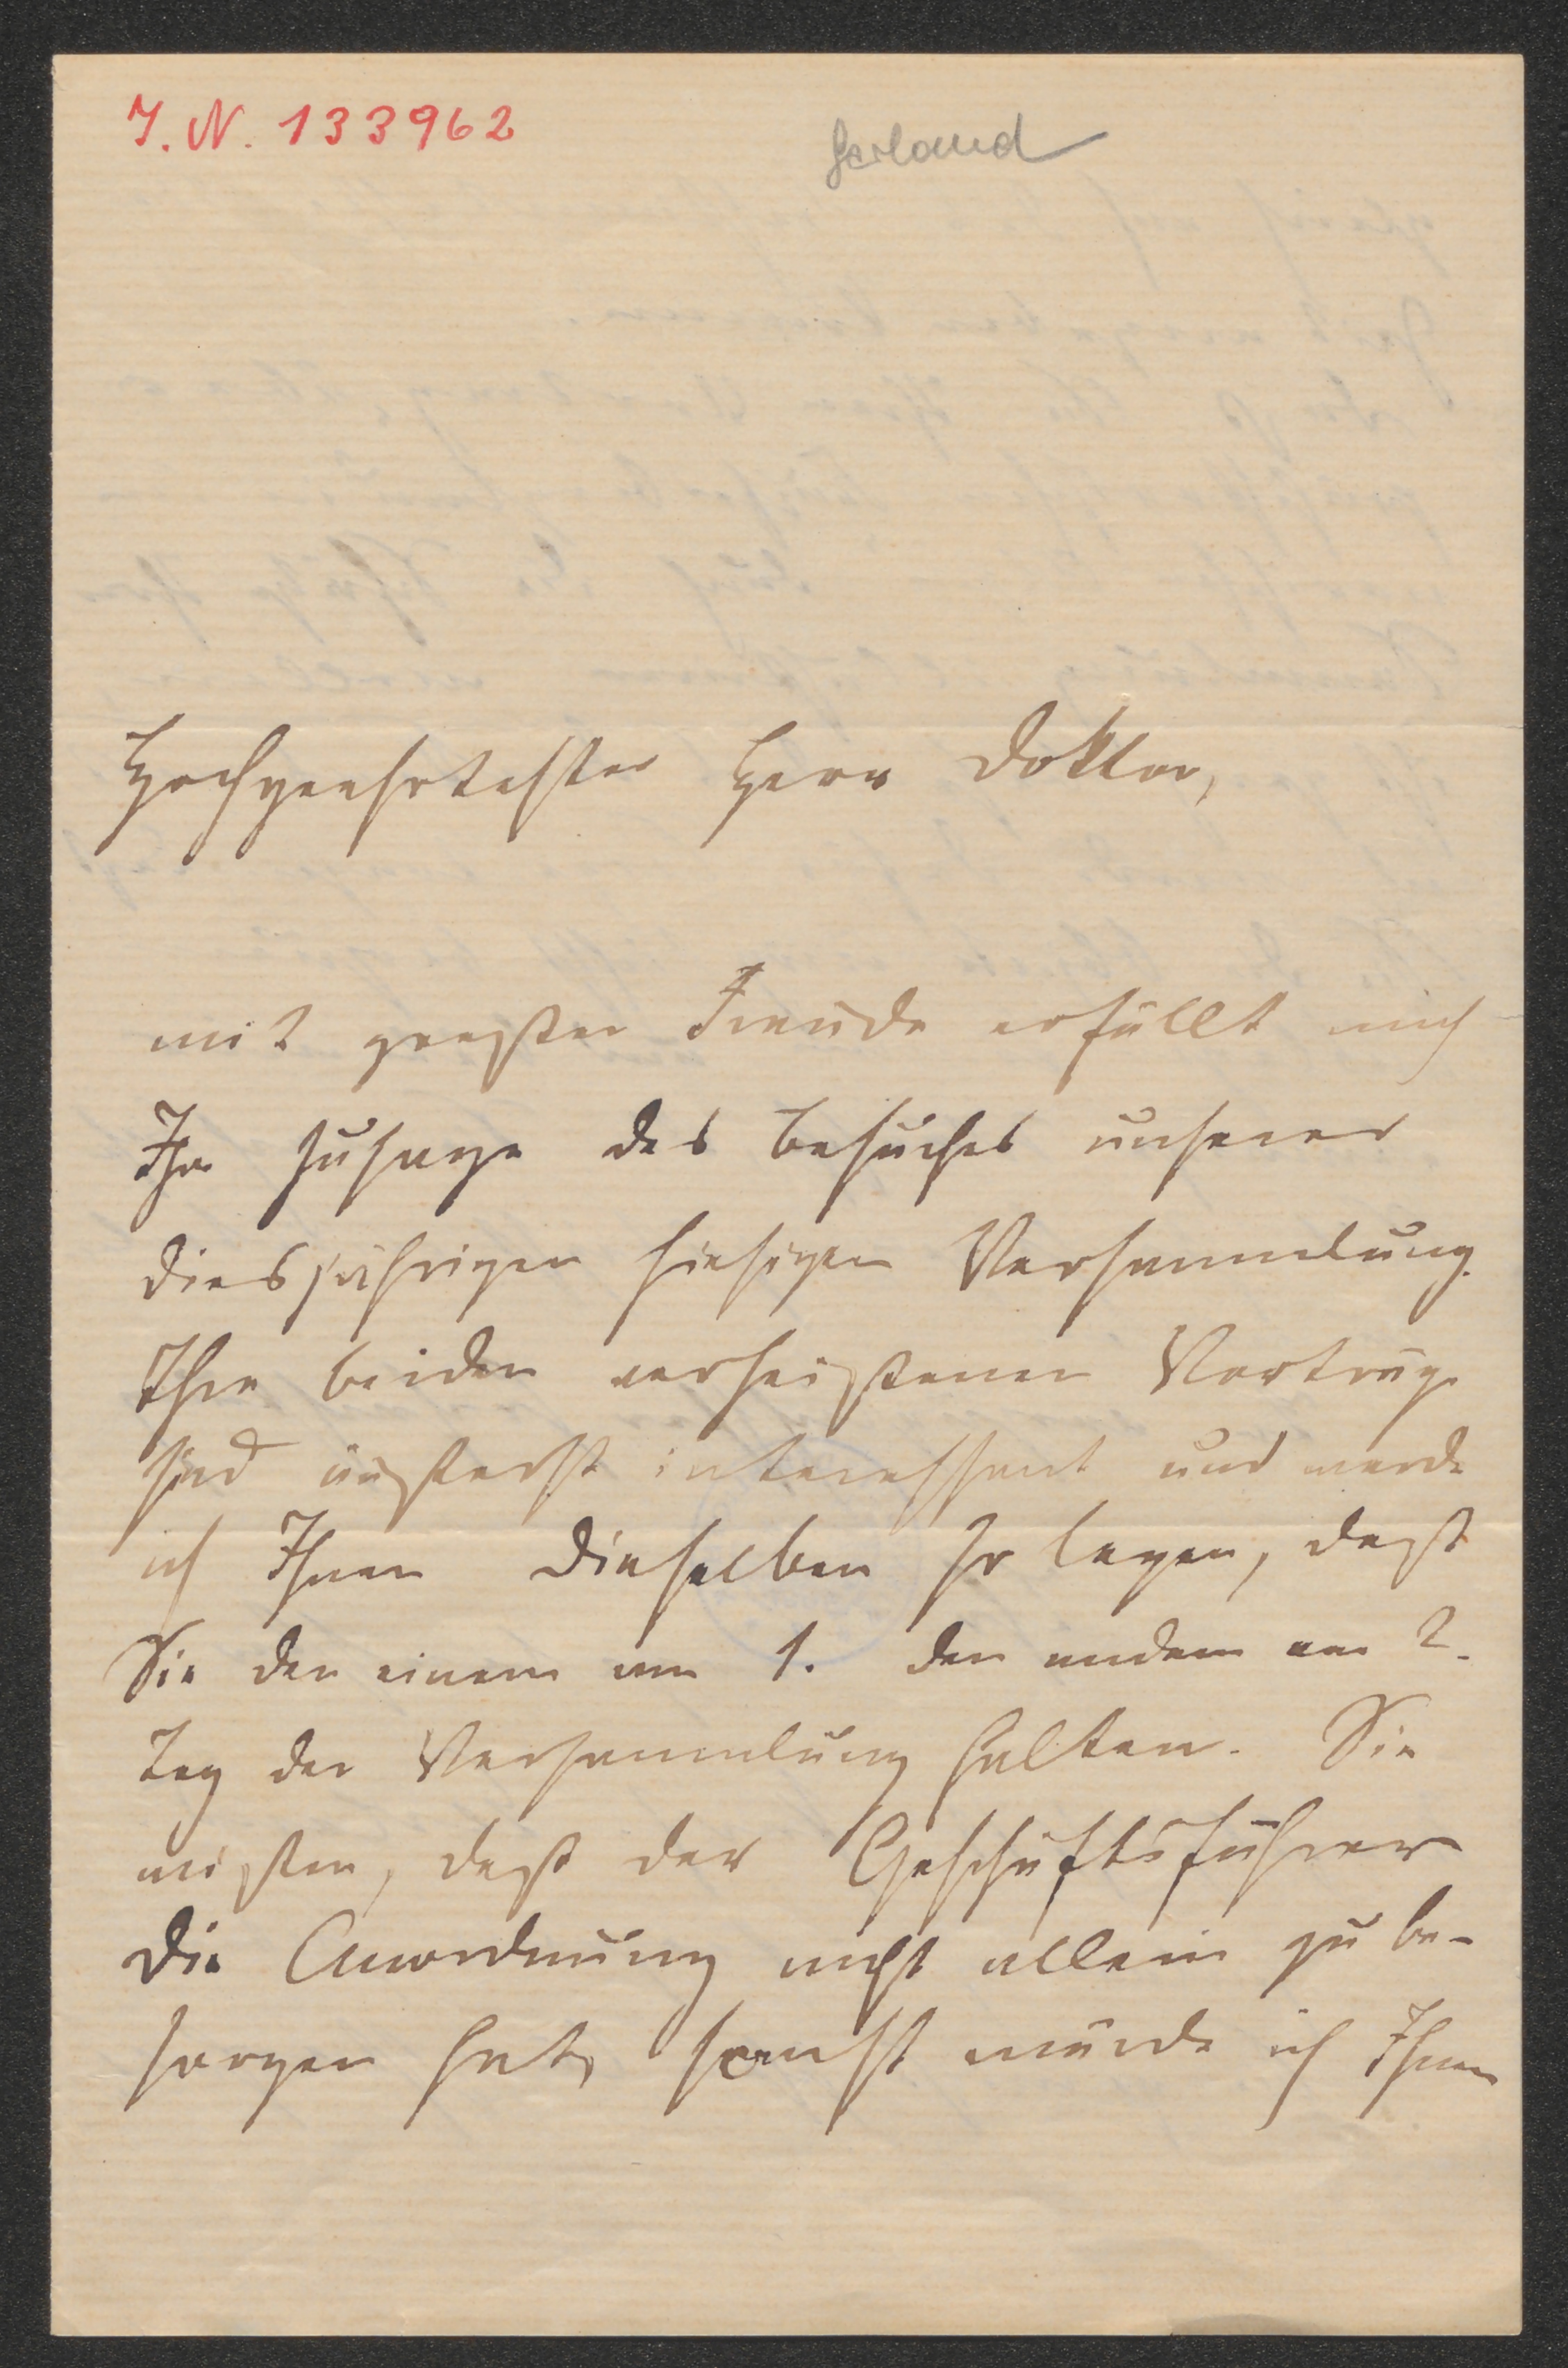 I. N. 133962
Gerland
Hochgeehrtester Herr Doktor,
mit groeszter Freude erfüllt mich
Ihre Zusage des Besuches unserer
diesjährigen hiesigen Versammlung.
Ihre beiden verheiszenen Vorträge
sind äuszerst interessant und werde
ich Ihnen dieselben so legen, dasz
Sie den einen am 1. den andern am 2.
Tag der Versammlung halten. Sie
wiszen, dasz der Geschäftsführer
die Anordnung nicht allein zu be-
sorgen hat, sonst würde ich Ihnen